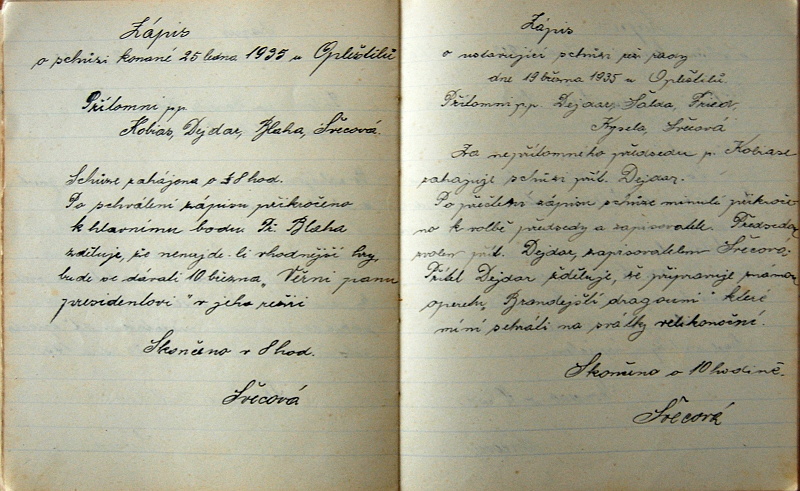 Zápis
o schůzi konané 25 ledna 1935 u Opleštilů
Přítomni pp
Kobias, Dejdar, Blaha, Švecová.
Schůze zahájena o 8 hod.
Po schválení zápisu přikročeno
k hlavnímu bodu. Př. Blaha
zděluje, že nenajde-li vhodnější hry,
bude se dávati 10 března „Věrni panu
presidentovi" v jeho režii
Skončeno v 8 hod.
Švecová
Zápis
o ustavující schůzi rady
dne 19 března 1935 u Opleštilů.
Přítomni pp. Dejdar, Šalda, Fried,
Kysela, Švecová
Za nepřítomného předsedu p. Kobiase
zahajuje schůzi přít. Dejdar.
Po přečtení zápisu schůze minulé přikroče-
no k volbě předsedy a zapisovatele. Předsedou
zvolen přít. Dejdar, zapisovatelem Švecová
Přítel Dejdar sděluje, že připravuje
operetu „Brandejští dragouni" které
míní sehráti na svátky velikonoční.
Skončeno o 10 hodině.
Švecová